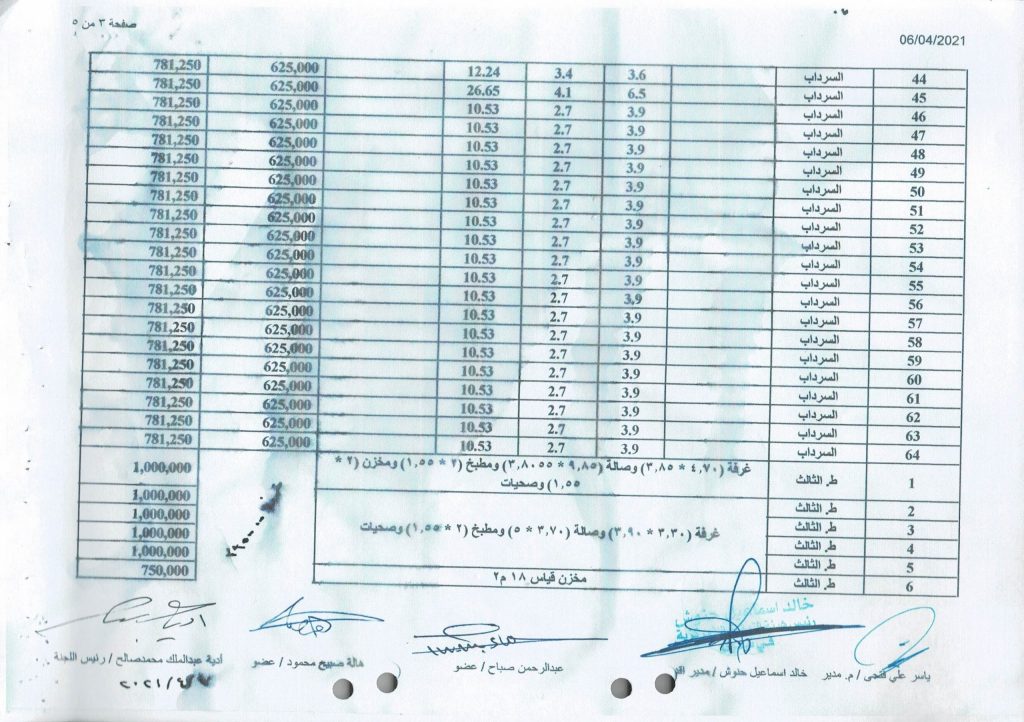 صفحة ٣ من ٥
06/04/2021
44 السرداب 3.6 3.4 12.24 625,000 781,250
45 السرداب 6.5 4.1 26.65 625,000 781,250
46 السرداب 3.9 2.7 10.53 625,000 781,250
47 السرداب 3.9 2.7 10.53 625,000 781,250
48 السرداب 3.9 2.7 10.53 625,000 781,250
49 السرداب 3.9 2.7 10.53 625,000 781,250
50 السرداب 3.9 2.7 10.53 625,000 781,250
51 السرداب 3.9 2.7 10.53 625,000 781,250
52 السرداب 3.9 2.7 10.53 625,000 781,250
53 السرداب 3.9 2.7 10.53 625,000 781,250
54 السرداب 3.9 2.7 10.53 625,000 781,250
55 السرداب 3.9 2.7 10.53 625,000 781,250
56 السرداب 3.9 2.7 10.53 625,000 781,250
57 السرداب 3.9 2.7 10.53 625,000 781,250
58 السرداب 3.9 2.7 10.53 625,000 781,250
59 السرداب 3.9 2.7 10.53 625,000 781,250
60 السرداب 3.9 2.7 10.53 625,000 781,250
61 السرداب 3.9 2.7 10.53 625,000 781,250
62 السرداب 3.9 2.7 10.53 625,000 781,250
63 السرداب 3.9 2.7 10.53 625,000 781,250
64 السرداب 3.9 2.7 10.53 625,000 781,250
1 ط. الثالث غرفة (٤,٧٠ * ٣,٨٥) وصالة (٩,٨٥ * ٣,٨٠٥٥) ومطبخ (٢ * ١,٥٥) ومخزن (٢ * 1,000,000
١,٥٥) وصحيات
2 ط. الثالث 1,000,000
3 ط. الثالث غرفة (٣,٣٠ * ٣,٩٠) وصالة (٣,٧٠ * ٥) ومطبخ (٢ * ١,٥٥) وصحيات 1,000,000
4 ط. الثالث 1,000,000
5 ط. الثالث 1,000,000
6 ط. الثالث مخزن قياس ١٨ م٢ 750,000
خالد اسماعيل حنوش
ياسر علي فتحي / م. مدير
خالد اسماعيل حنوش / مدير
عبدالرحمن صباح / عضو
هالة صبيح محمود / عضو
أدية عبدالملك محمدصالح / رئيس اللجنة